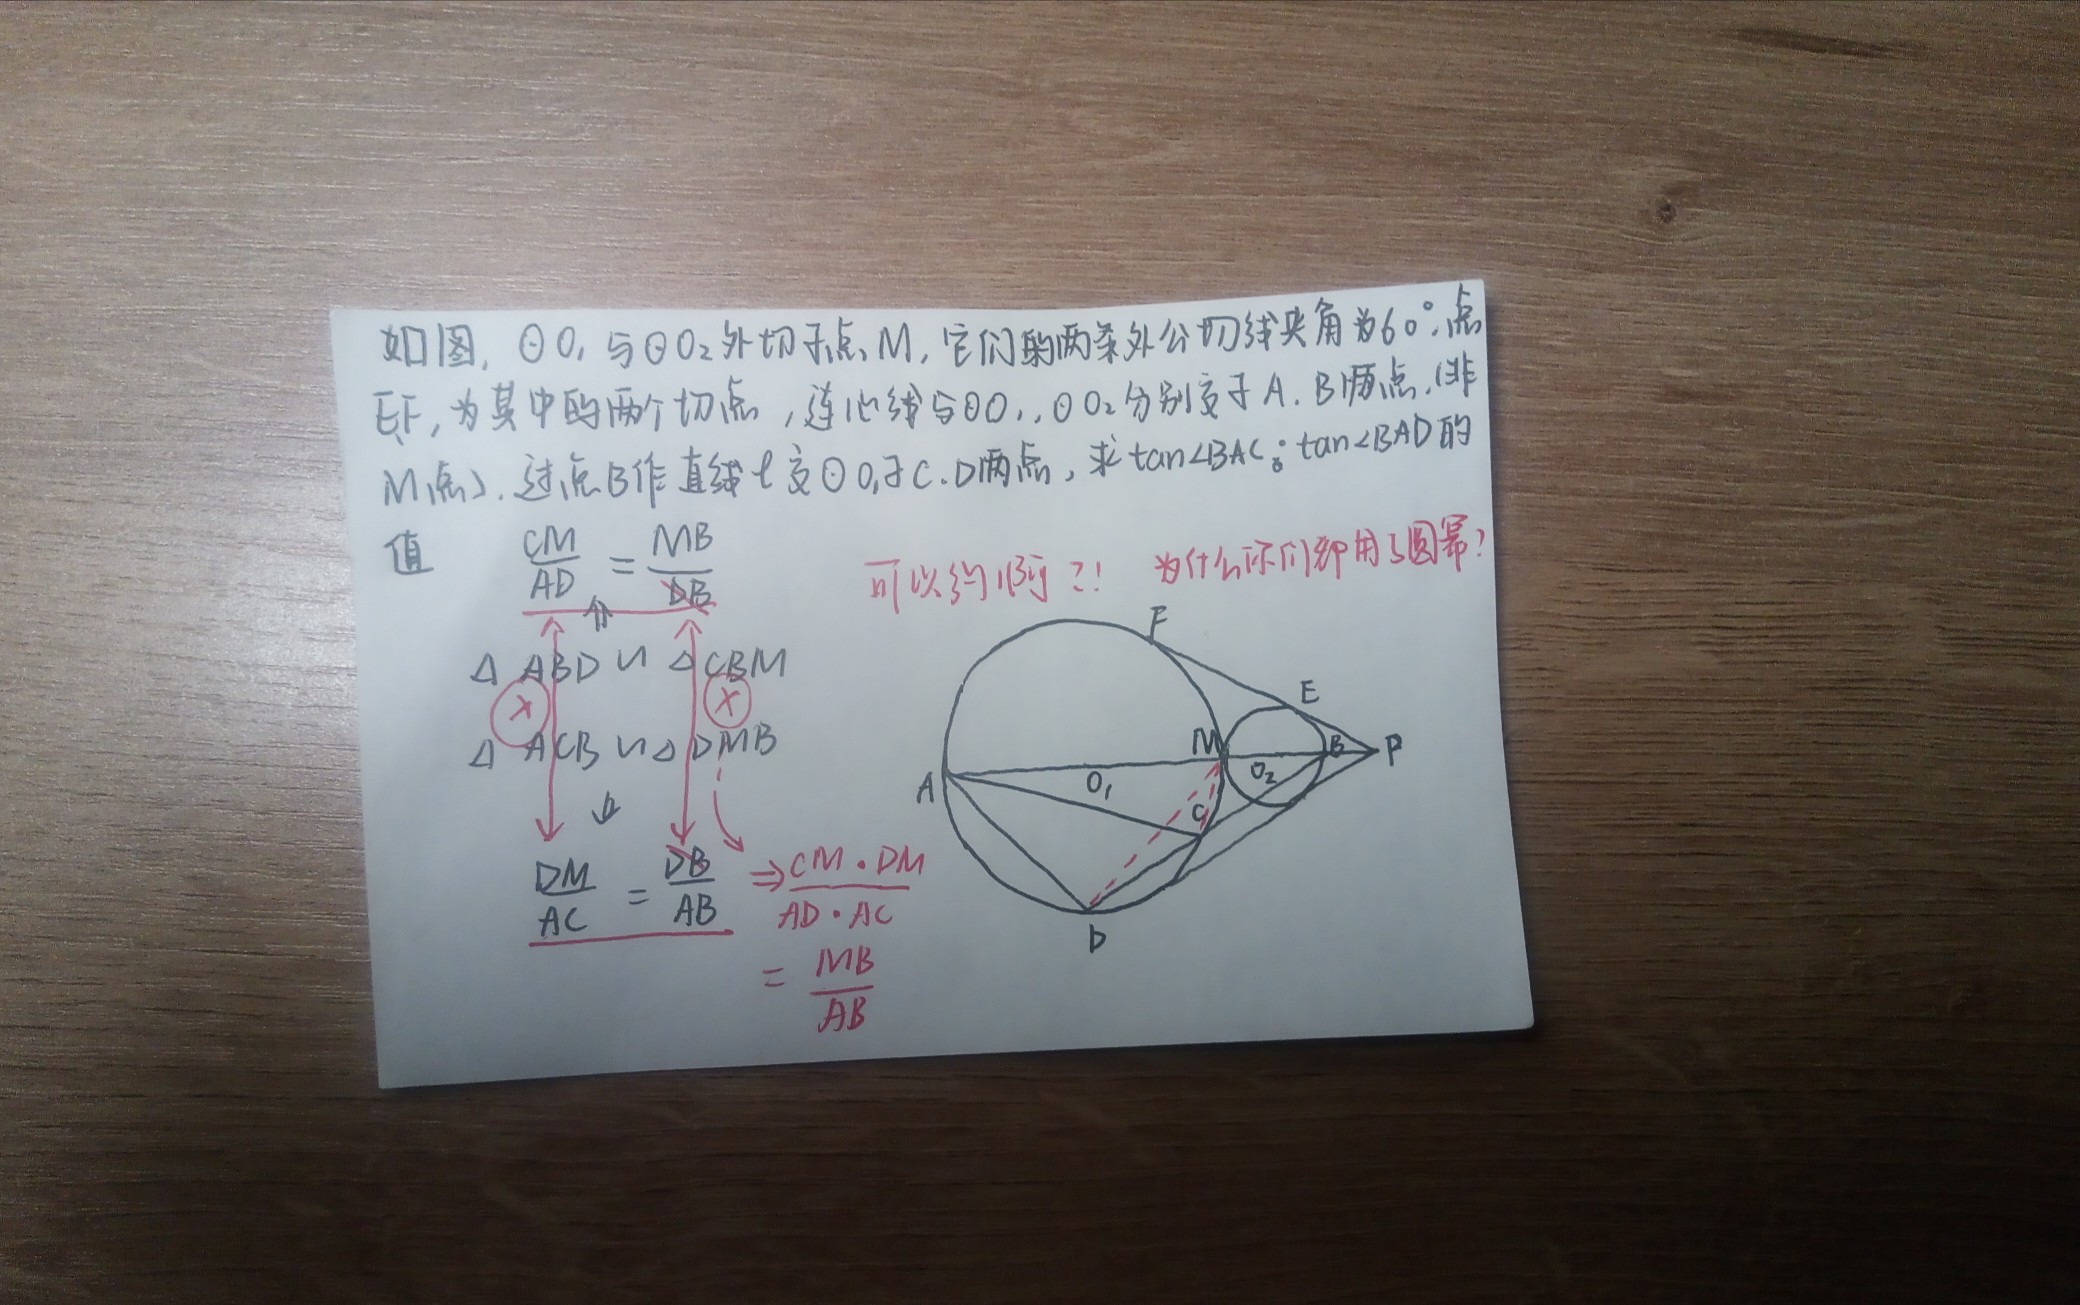 如图，⊙O₁与⊙O₂外切于点M，它们的两条外公切线夹角为60°，点
E、F，为其中的两个切点，连心线与⊙O₁、⊙O₂分别交于A、B两点，(非
M点)，过点B作直线l交⊙O₁于C、D两点，求tan∠BAC·tan∠BAD的
值
CM/AD = MB/DB
可以约啊？！ 为什么你们都用了圆幂？
⇑
△ABD ∽ △CBM
× ×
△ACB ∽ △DMB
⇓
DM/AC = DB/AB ⇒ CM·DM/AD·AC
= MB/AB
F
E
M
B
P
A
O₁
O₂
C
D